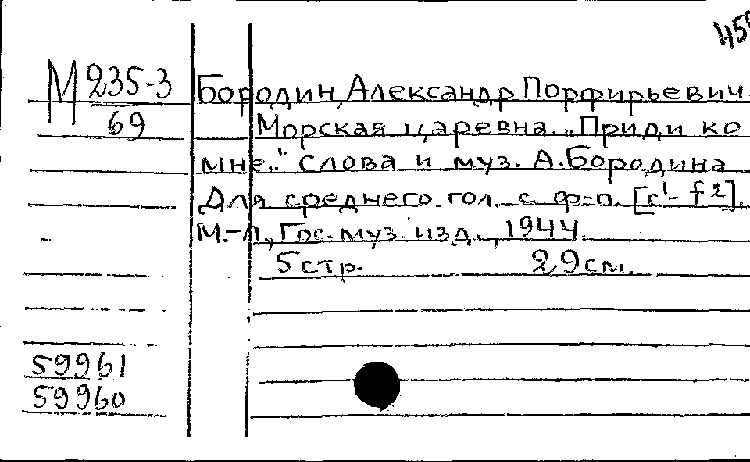 М 235-3
69
Бородин, Александр Порфирьевич
Морская царевна. „Приди ко
мне.." слова и муз. А. Бородина
Для среднего гол. с ф-п. [c¹- f²].
М.-Л., Гос. муз. изд., 1944.
5 стр. 29 см.
59961
59960